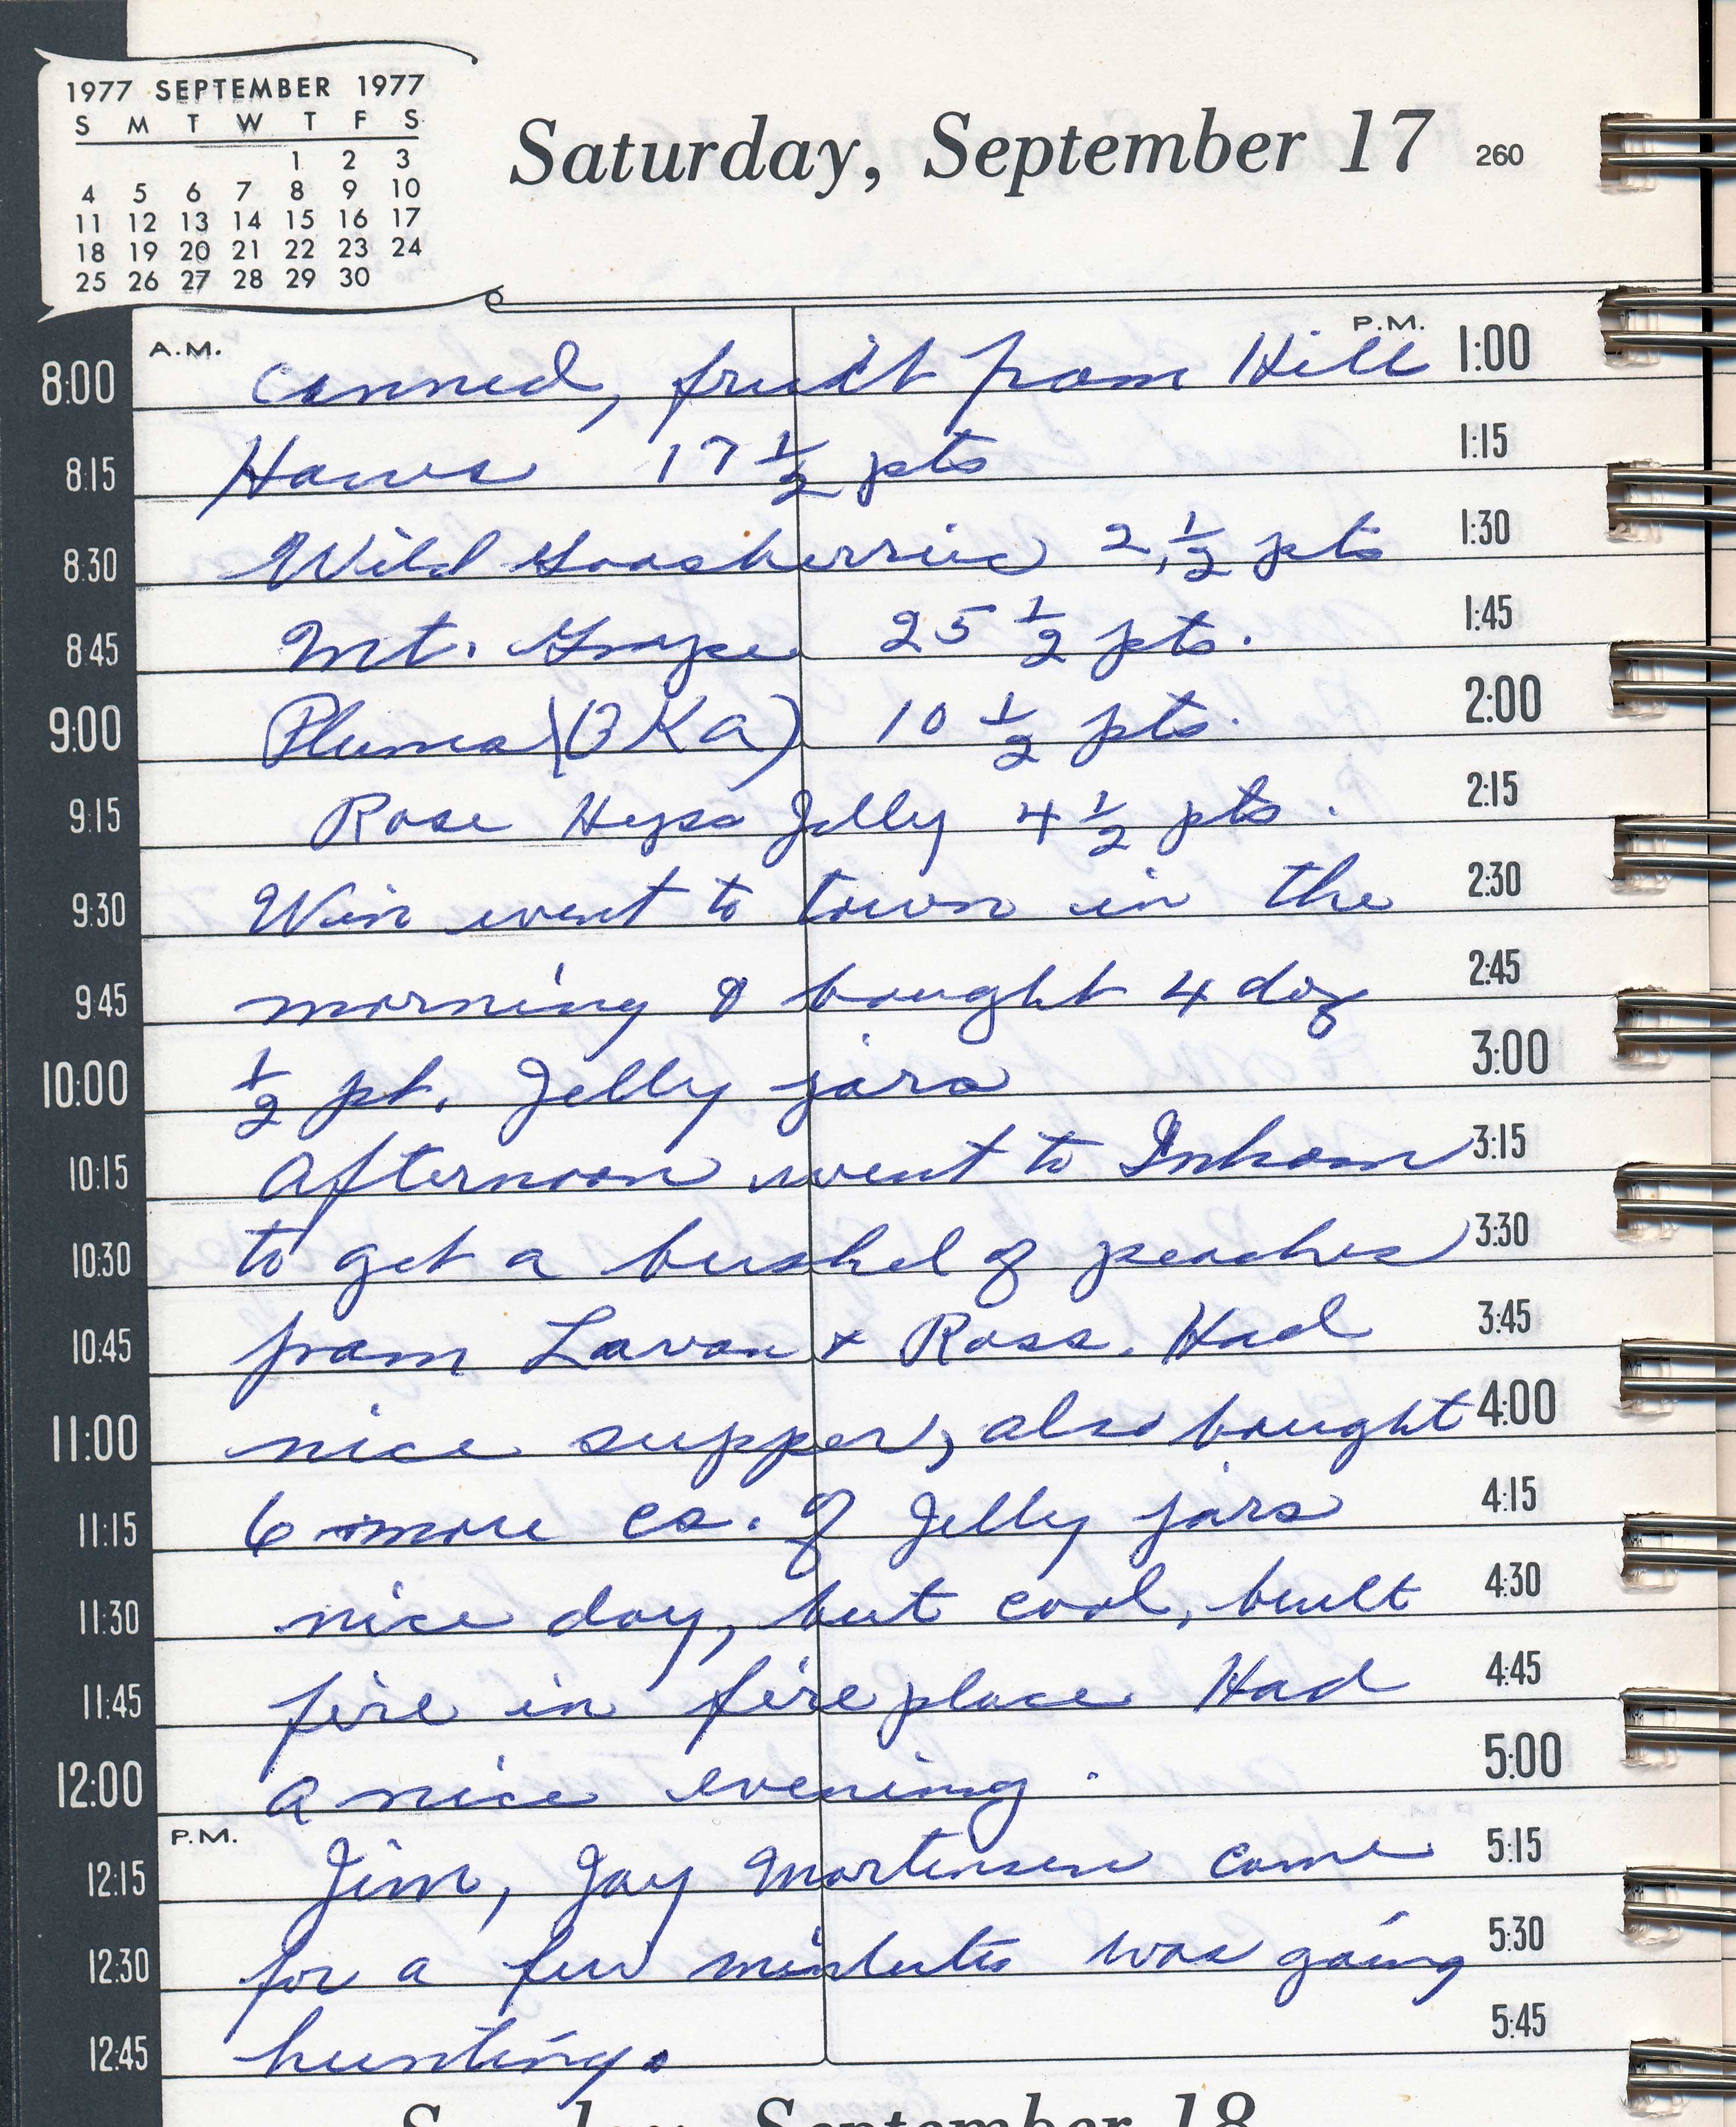 1977 SEPTEMBER 1977
S M T W T F S
1 2 3
4 5 6 7 8 9 10
11 12 13 14 15 16 17
18 19 20 21 22 23 24
25 26 27 28 29 30
Saturday, September 17 260
A.M. P.M.
8:00 canned, fruit from Hill 1:00
8:15 Haws 17 1/2 pts 1:15
8:30 Wild Gooseberries 2 1/2 pts 1:30
8:45 Mt. Grape 25 1/2 pts. 1:45
9:00 Plums (BKA) 10 1/2 pts. 2:00
9:15 Rose Hyps Jelly 4 1/2 pts. 2:15
9:30 Win went to town in the 2:30
9:45 morning & bought 4 doz 2:45
10:00 1/2 pt. Jelly jars 3:00
10:15 afternoon went to Inkom 3:15
10:30 to get a bushel of peaches 3:30
10:45 from Lavon + Ross. Had 3:45
11:00 nice supper, also bought 4:00
11:15 6 more cs. of Jelly jars 4:15
11:30 nice day, but cool, built 4:30
11:45 fire in fireplace Had 4:45
12:00 a nice evening. 5:00
P.M.
12:15 Jim, Jay Mortensen came 5:15
12:30 for a few mintutes was going 5:30
12:45 hunting. 5:45
Sunday, September 18